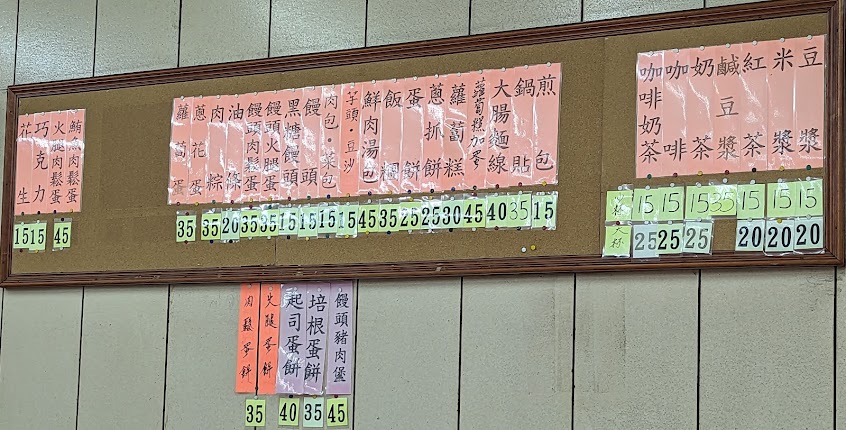 豆漿
米漿
紅茶
鹹豆漿
奶茶
咖啡
咖啡奶茶
15 15 15 35 15 15 15
大杯 25 25 25 20 20 20
煎包
鍋貼
大腸麵線
蘿蔔糕加蛋
蘿蔔糕
蔥抓餅
蛋餅
飯糰
鮮肉湯包
芋頭·豆沙
肉包·菜包
饅頭
黑糖饅頭
饅頭火腿蛋
饅頭肉鬆蛋
油條
肉粽
蔥花蛋
蘿蔔蛋
35 35 20 35 35 15 15 15 15 45 35 25 25 30 45 40 35 15
鮪魚肉鬆蛋
火腿肉鬆蛋
巧克力
花生
15 15 45
饅頭豬肉堡
培根蛋餅
起司蛋餅
火腿蛋餅
肉鬆蛋餅
35 40 35 45